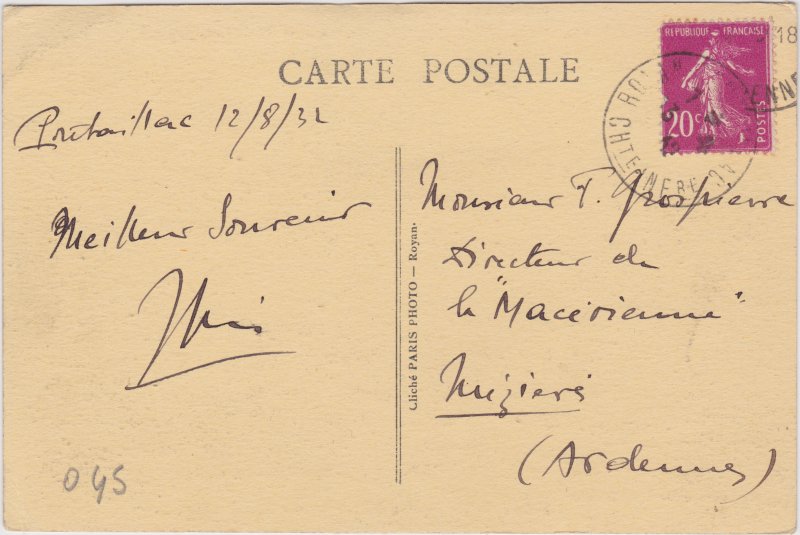 CARTE POSTALE
Pontaillac 12/8/32
Meilleur Souvenir
Cliché PARIS PHOTO — Royan.
REPUBLIQUE FRANÇAISE
20c
POSTES
ROYAN
CHTE INFRE
18
ENNE
Monsieur T. Grospierre
Directeur de
la "Macérienne"
Mézières
(Ardennes)
045